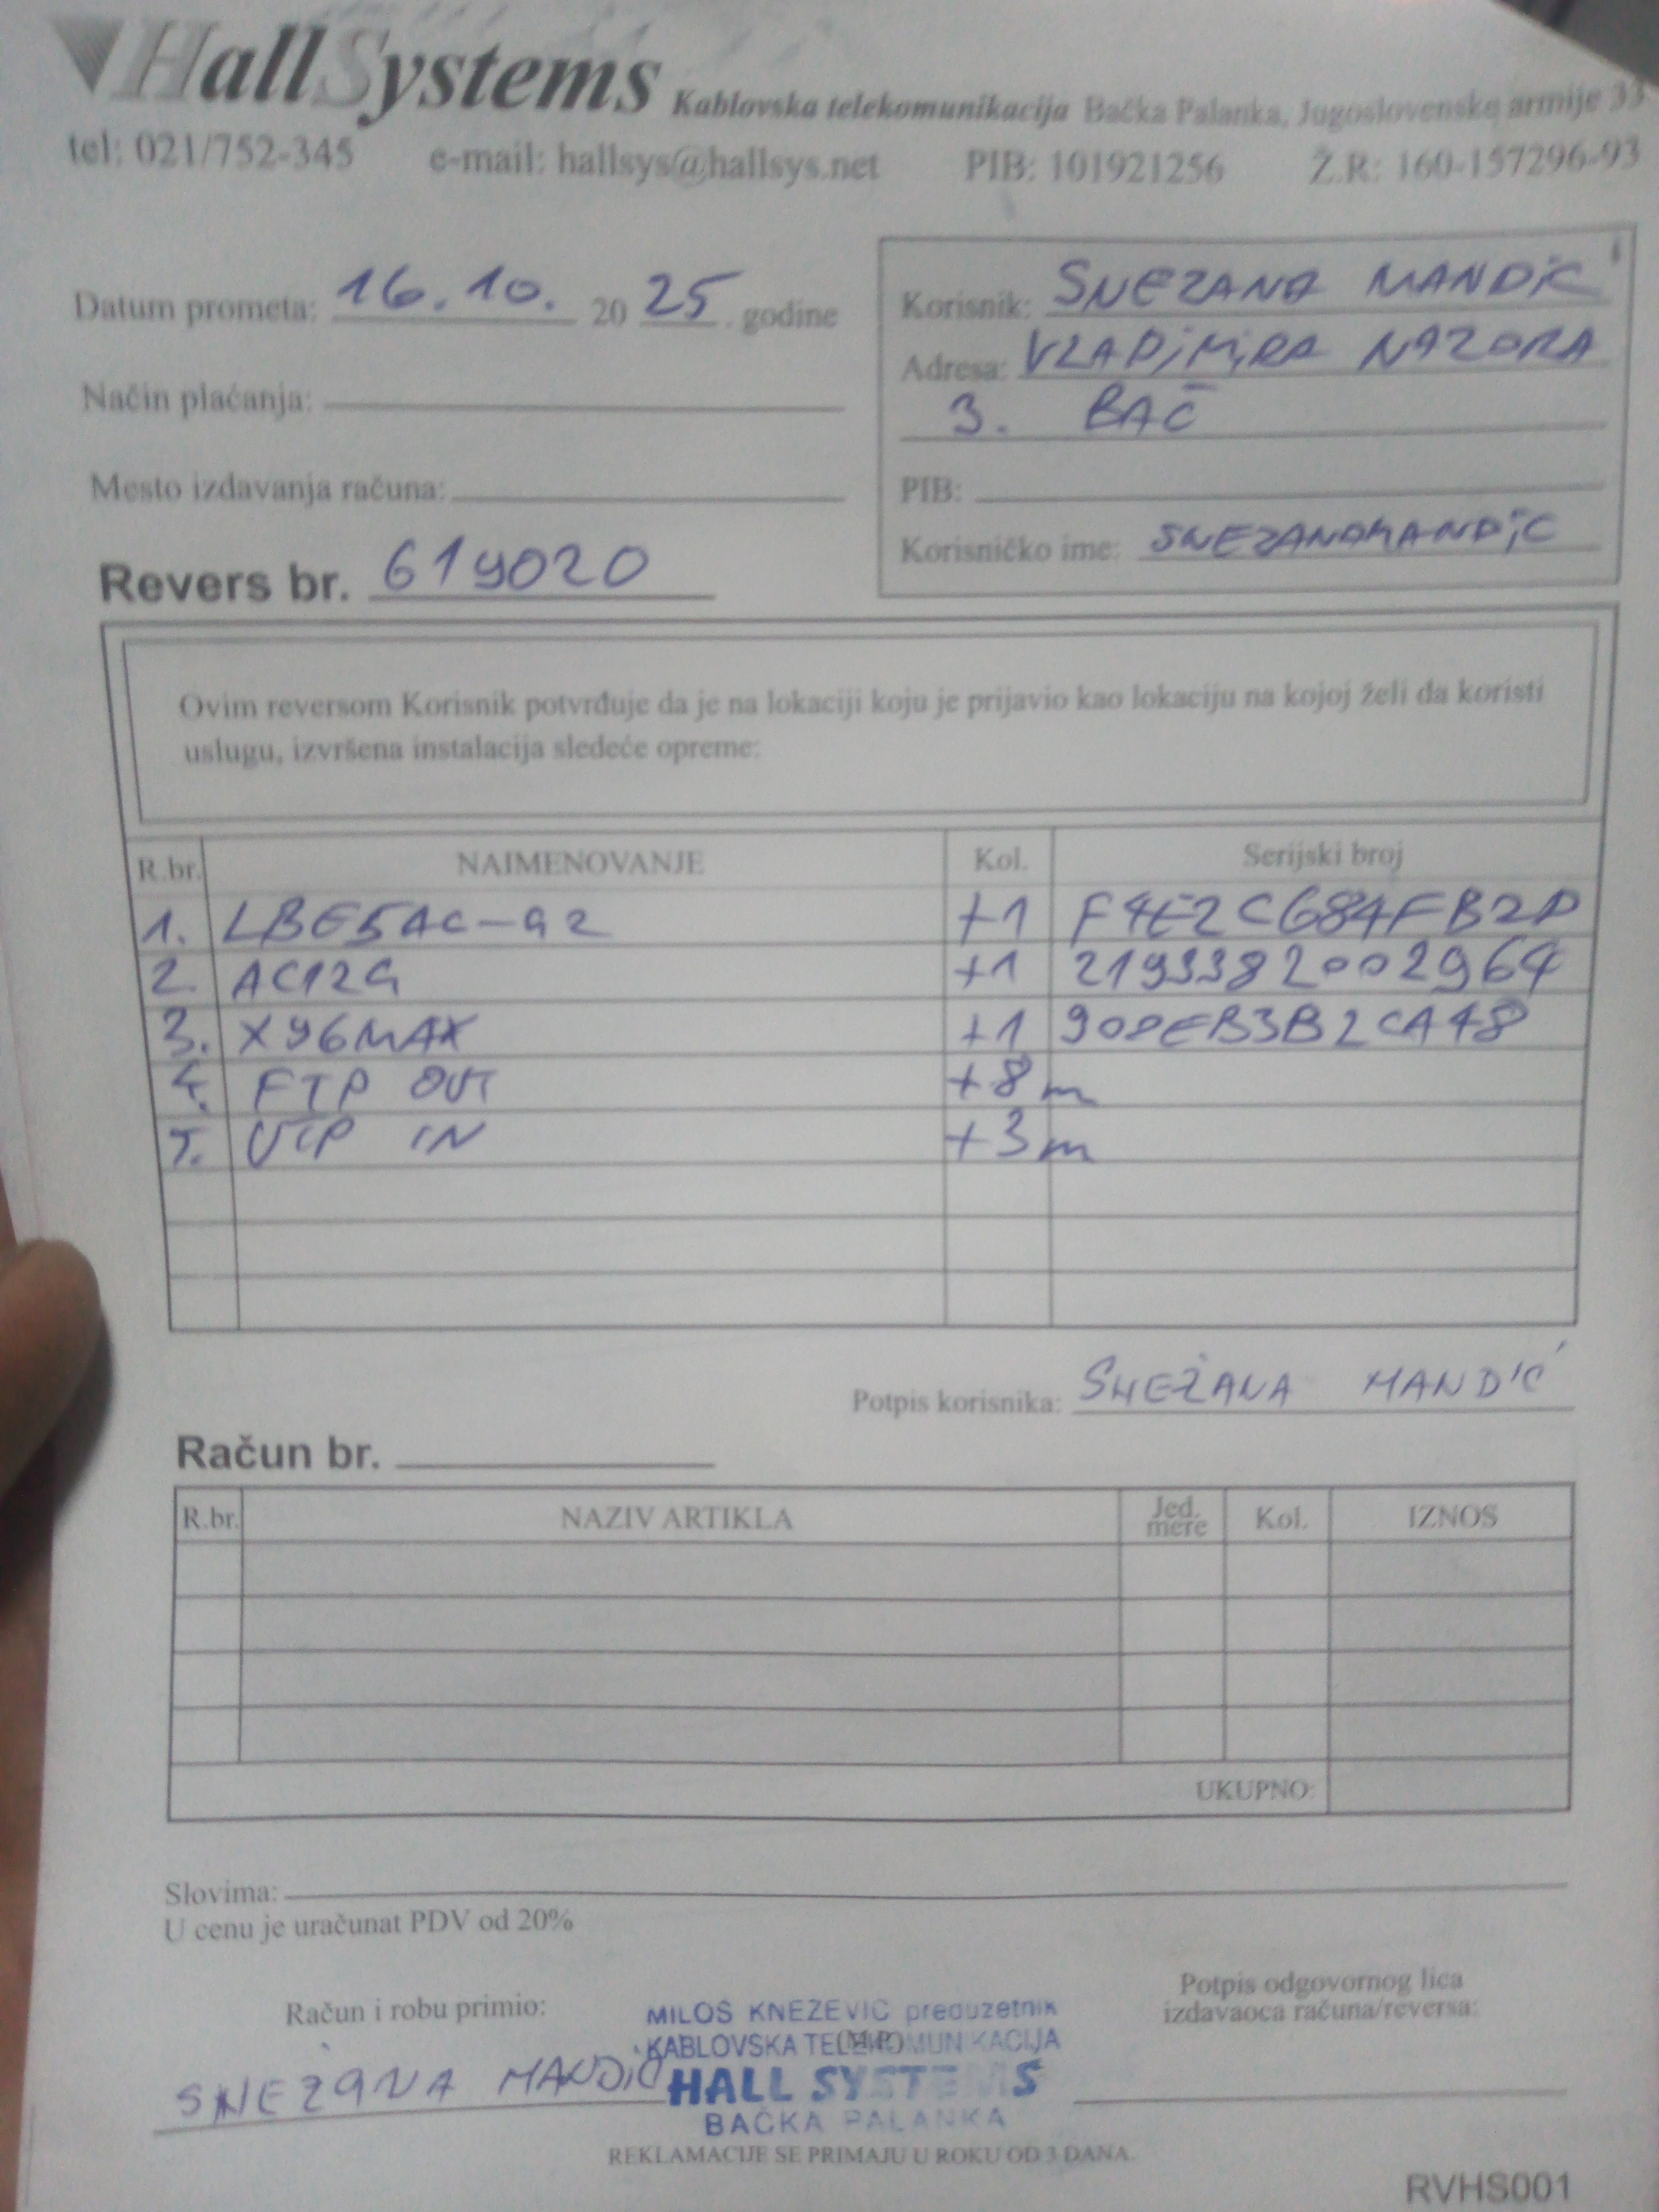 HallSystems Kablovska telekomunikacija Bačka Palanka, Jugoslovenske armije 33
tel: 021/752-345 e-mail: hallsys@hallsys.net PIB: 101921256 Ž.R: 160-157296-93
Datum prometa: 16.10. 20 25. godine
Način plaćanja:
Mesto izdavanja računa:
Revers br. 619020
Korisnik: SNEZANA MANDIC
Adresa: VLADIMIRA NAZORA
3. BAČ
PIB:
Korisničko ime: SNEZANAMANDIC
Ovim reversom Korisnik potvrđuje da je na lokaciji koju je prijavio kao lokaciju na kojoj želi da koristi
uslugu, izvršena instalacija sledeće opreme:
R.br. NAIMENOVANJE Kol. Serijski broj
1. LBE5AC-G2 +1 F4E2C684FB2D
2. AC12G +1 2193382002964
3. X96MAX +1 90DEB3B2CA48
4. FTP OUT +8m
5. UTP IN +3m
Potpis korisnika: SNEŽANA MANDIĆ
Račun br.
R.br. NAZIV ARTIKLA Jed. mere Kol. IZNOS
UKUPNO:
Slovima:
U cenu je uračunat PDV od 20%
Račun i robu primio:
SNEZANA MANDIC
MILOŠ KNEŽEVIĆ preduzetnik
KABLOVSKA TELEKOMUNIKACIJA
(M.P.)
HALL SYSTEMS
BAČKA PALANKA
Potpis odgovornog lica
izdavaoca računa/reversa:
REKLAMACIJE SE PRIMAJU U ROKU OD 3 DANA.
RVHS001